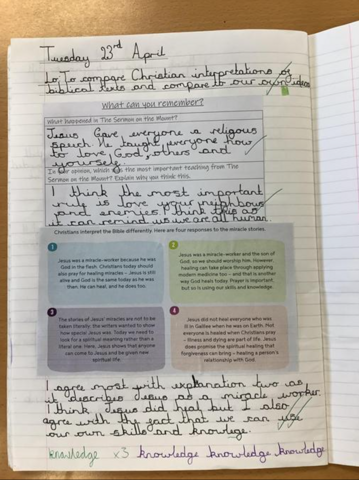 Tuesday 23rd April
Lo To compare Christian interpretations of
biblical texts and compare to our own ideas
What can you remember?
What happened in The Sermon on the Mount?
Jesus Gave everyone a religous
speech He taught everyone how
to love, God, others and
yourself.
In your opinion, which is the most important teaching from The
Sermon on the Mount? Explain why you think this.
I think the most important
rule is love your neighbours
and enemies I think this as
it can remind us we are all human.
Christians interpret the Bible differently. Here are four responses to the miracle stories.
1
Jesus was a miracle-worker because he was
God in the flesh. Christians today should
also pray for healing miracles – Jesus is still
alive and God is the same today as he was
then. He can heal, and he does too.
2
Jesus was a miracle-worker and the son of
God, so we should worship him. However,
healing can take place through applying
modern medicine too – and that is another
way God heals today. Prayer is important,
but so is using our skills and knowledge.
3
The stories of Jesus' miracles are not to be
taken literally: the writers wanted to show
how special Jesus was. Today we need to
look for a spiritual meaning rather than a
literal one. Here, Jesus shows that anyone
can come to Jesus and be given new
spiritual life.
4
Jesus did not heal everyone who was
ill in Galilee when he was on Earth. Not
everyone is healed when Christians pray
– illness and dying are part of life. Jesus
does promise the spiritual healing that
forgiveness can bring – healing a person's
relationship with God.
I agree most with explanation two as
it describes Jesus as a miracle worker.
I think Jesus did heal but I also
agree with the fact that we can use
our own skills and knowlege.
knowledge x3 knowledge knowledge knowledge